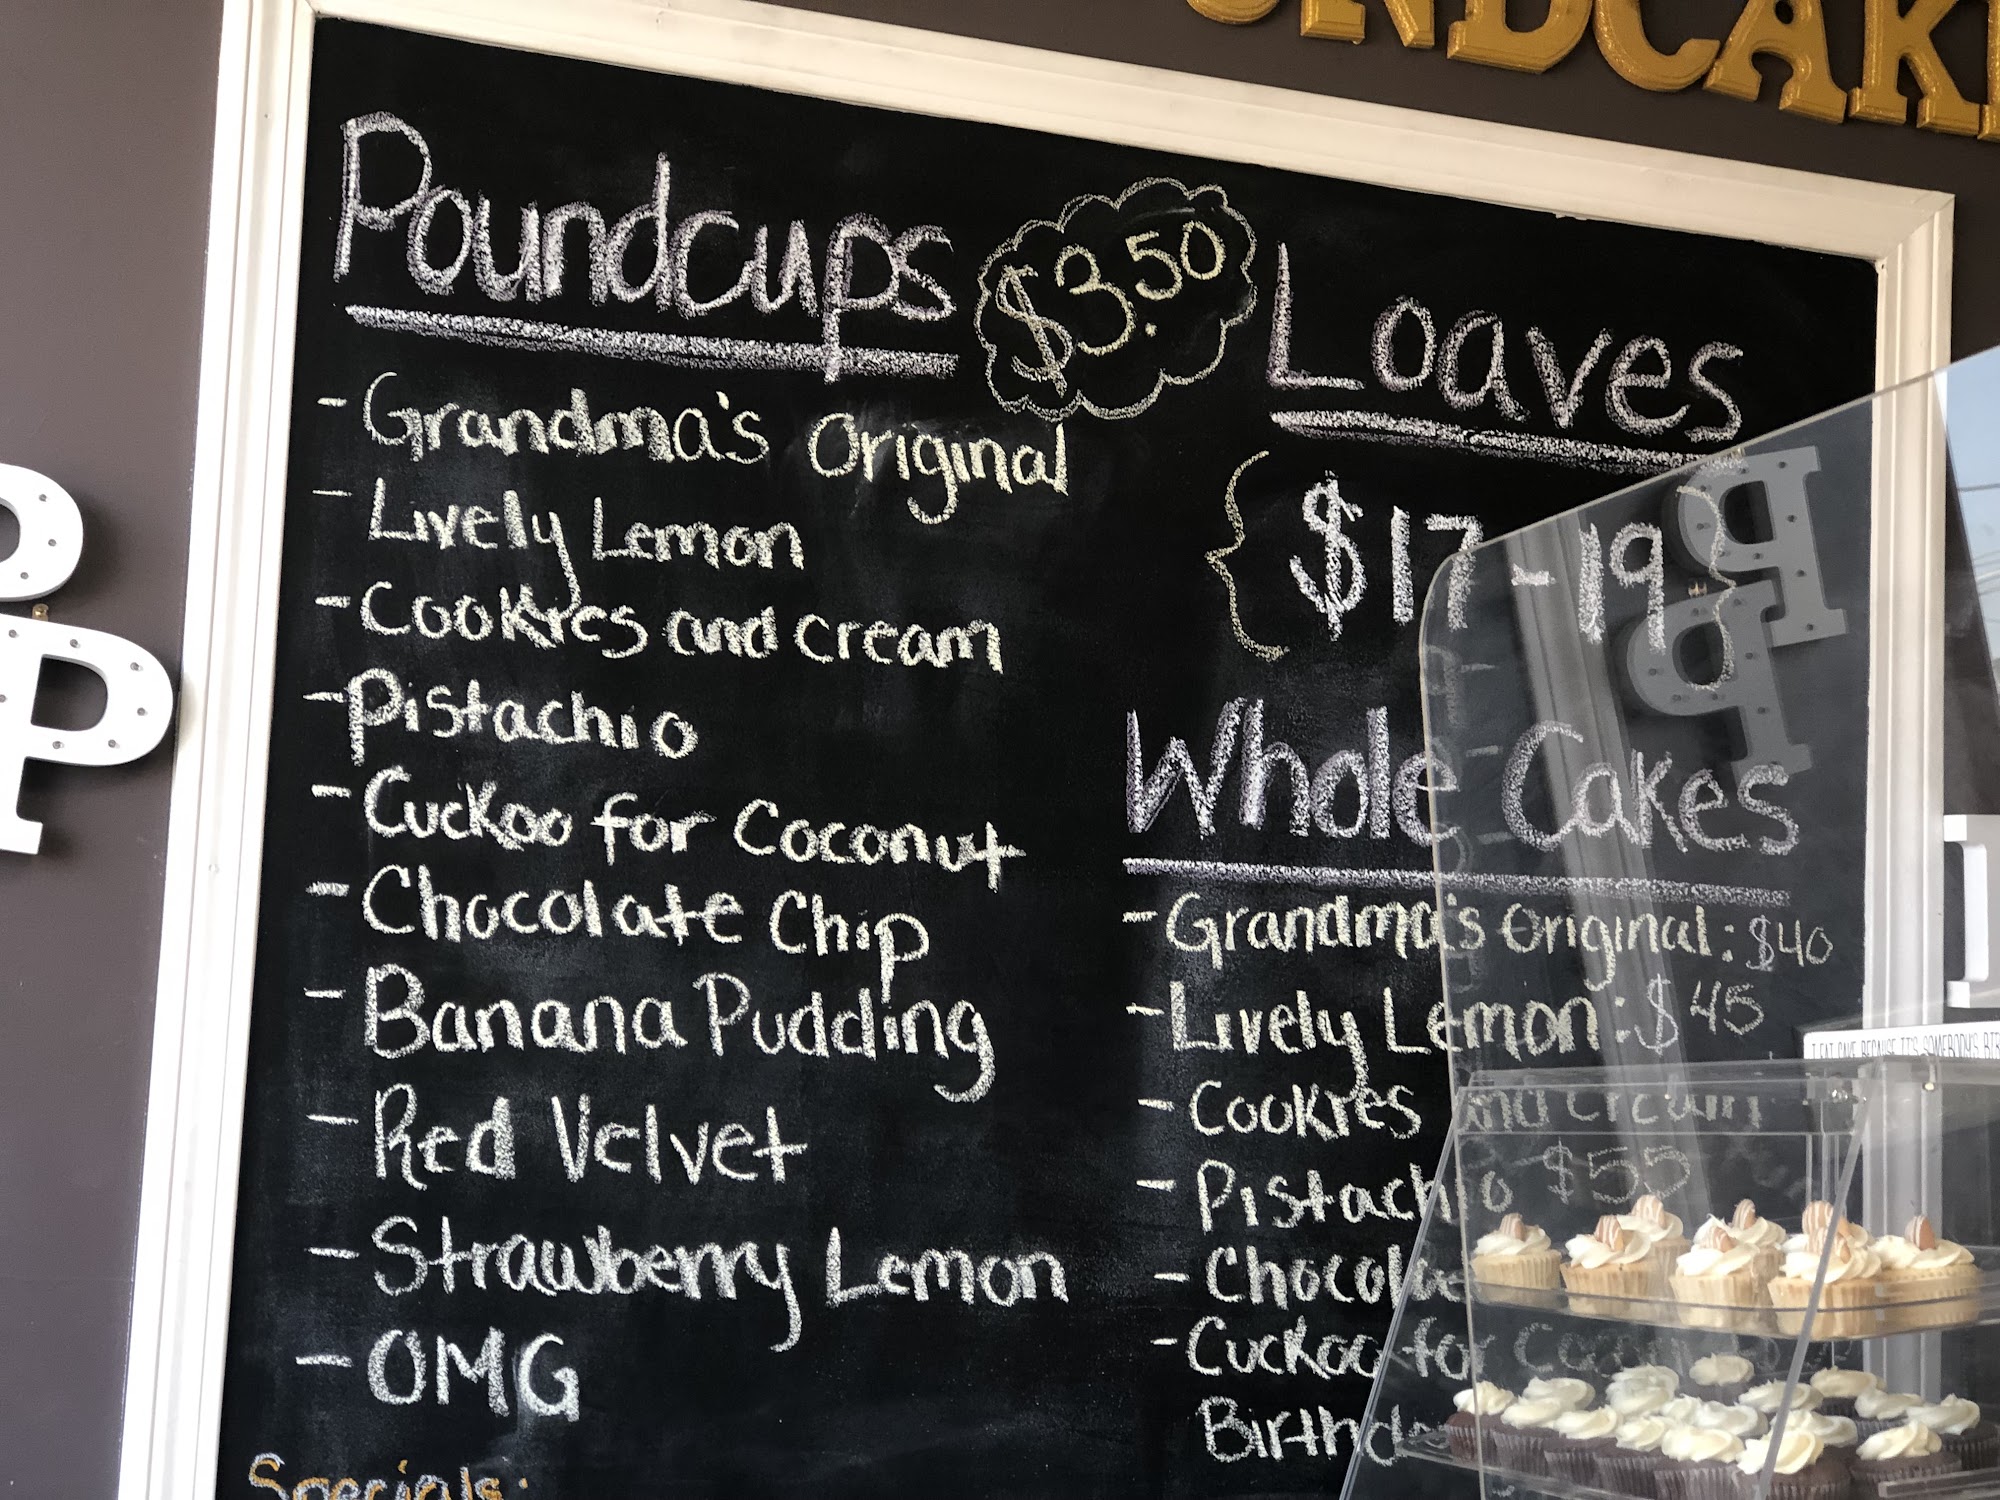 Poundcups $3.50
- Grandma's Original
- Lively Lemon
- Cookies and cream
- Pistachio
- Cuckoo for Coconut
- Chocolate Chip
- Banana Pudding
- Red Velvet
- Strawberry Lemon
- OMG
Specials:
Loaves
{$17-19}
Whole Cakes
- Grandma's Original: $40
- Lively Lemon: $45
- Cookies and cream
- Pistachio $55
- Cuckoo for
I EAT CAKE BECAUSE IT'S SOMEBODY'S
P
P